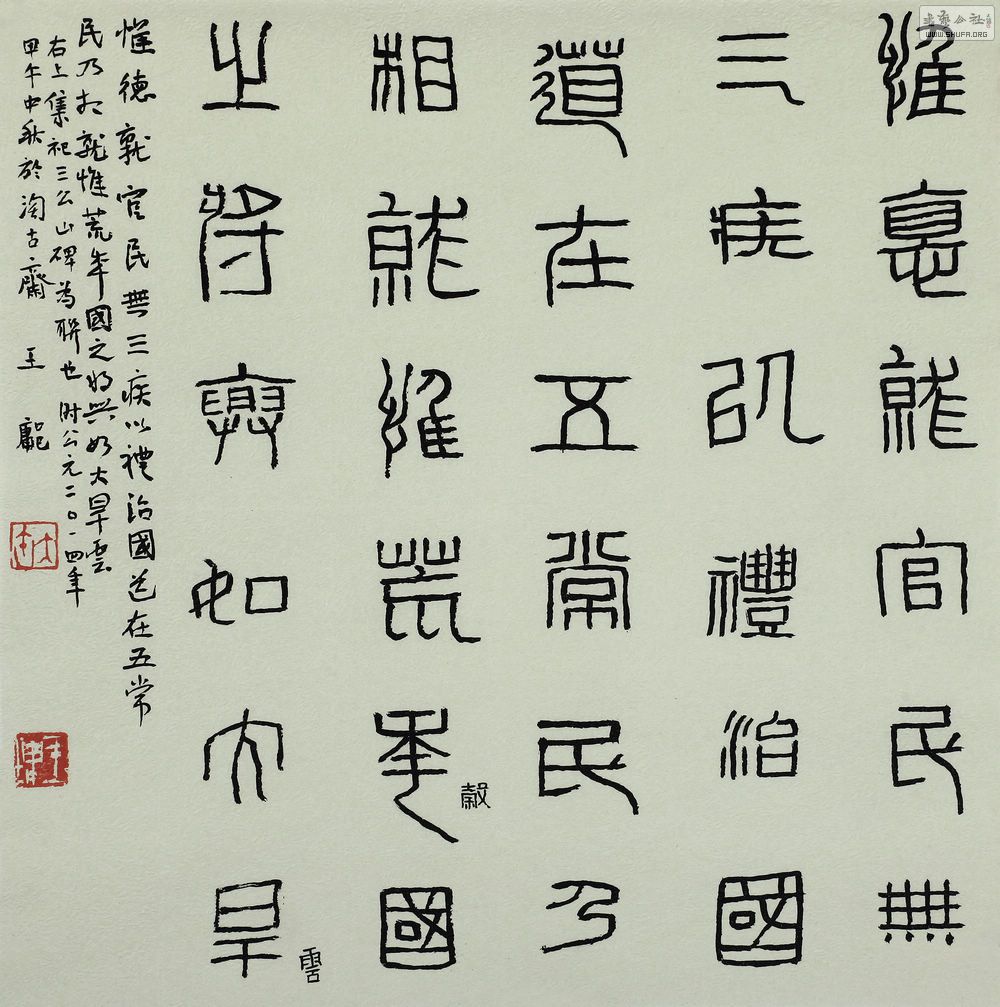 惟惪就官民無
三疾㠯禮治國
道在五常民乃
相就惟荒年穀國
之將興如大旱雲
惟德就官民無三疾以禮治國道在五常
民乃相就惟荒年國之將興如大旱雲
右上集祀三公山碑為聯也時公元二〇一四年
甲午中秋於淘古齋 王
书艺公社
WWW.SHUFA.ORG